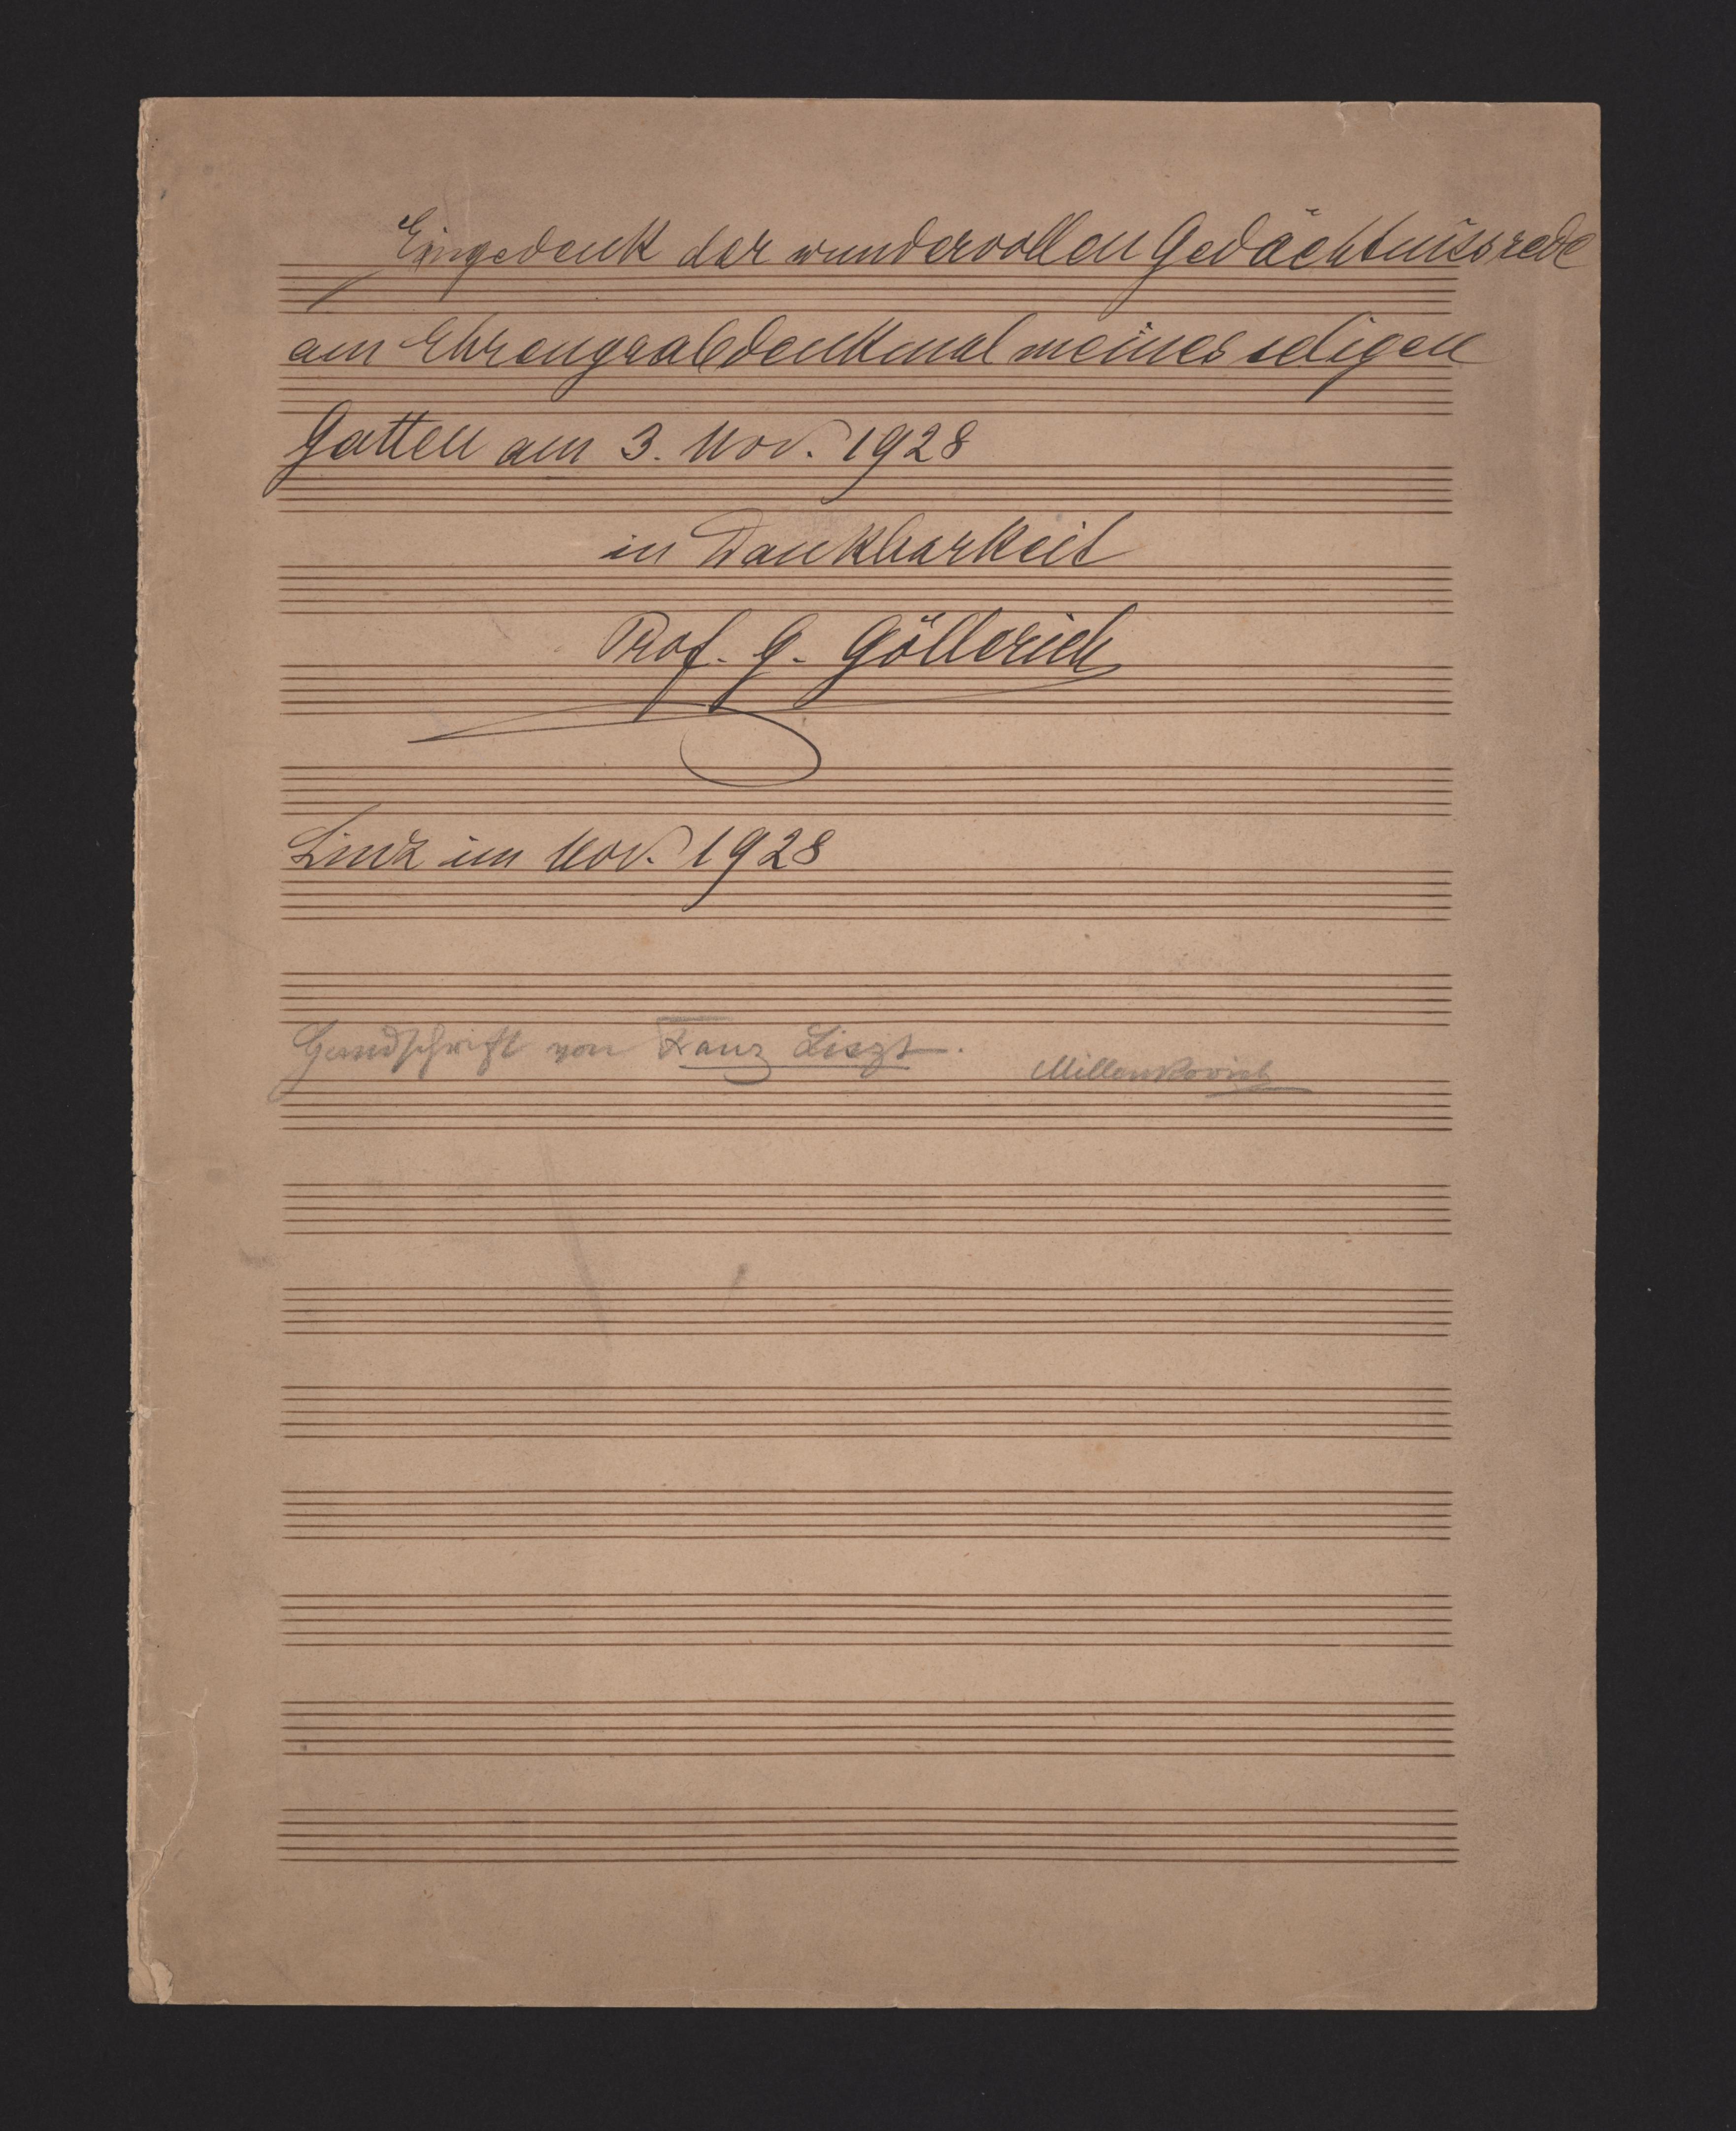 Eingedenk der wundervollen Gedächtnissrede
am Ehrengrabdenkmal meines seligen
Gatten am 3. Nov. 1928
in Dankbarkeit
Prof. G. Göllerich
Linz im Nov. 1928
Handschrift von Franz Liszt.
Millenkovich